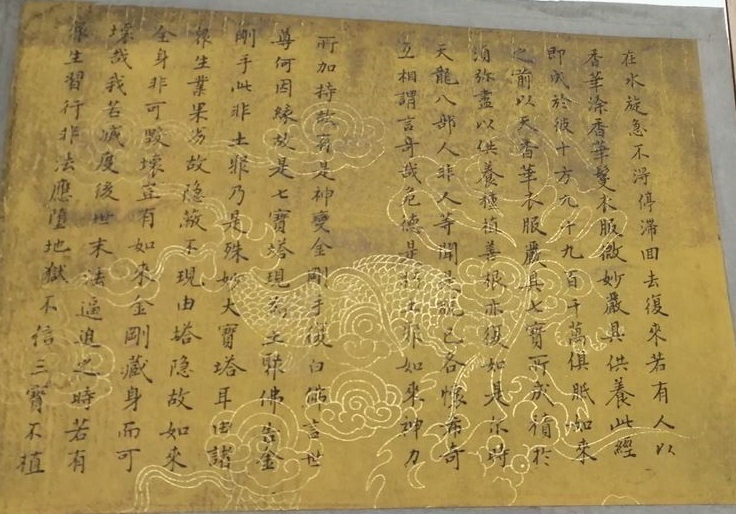 在水旋急不淂停滞回去復來若有人以
香華塗香華鬘衣服微妙嚴具供養此經
即成於彼十方九十九百千萬俱胝如來
之前以天香華衣服嚴具七寶所成積於
須弥盡以供養種植善根亦復如是尒時
天龍八部人非人等聞是説已各懐希奇
互相謂言竒哉危德是朽土聚如來神力
所加持故有是神變金剛手復白佛言世
尊何因縁故是七寶塔現為土聚佛告金
剛手此非土聚乃是殊妙大寶塔耳由諸
衆生業果劣故隐蔽不現由塔隐故如來
全身非可毀壊豈有如來金剛藏身而可
壊哉我若滅度後世末法逼迫之時若有
衆生習行非法應墮地獄不信三寶不植